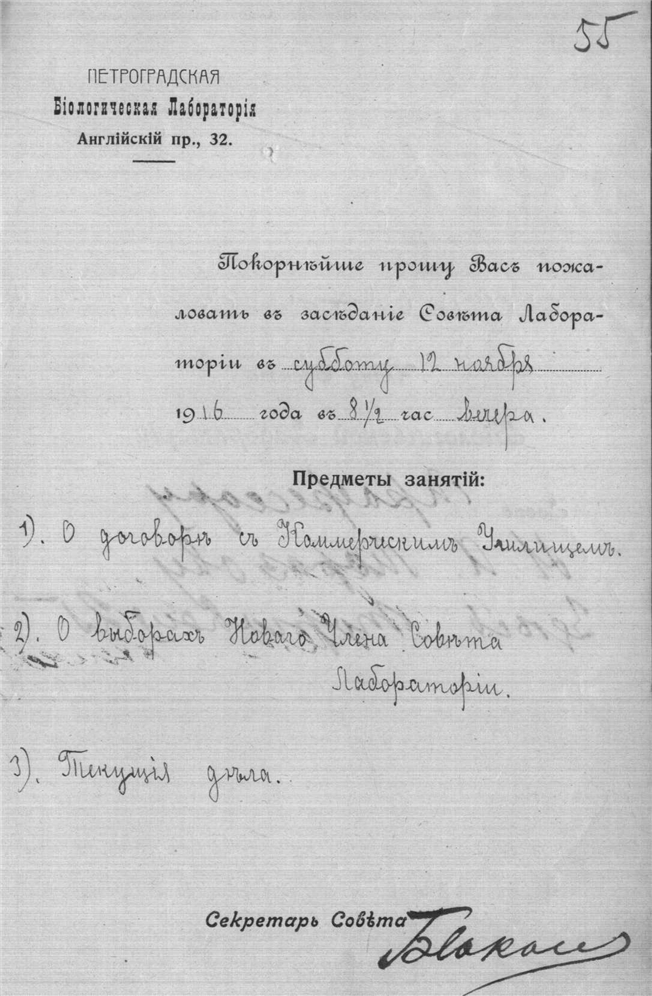 55
ПЕТРОГРАДСКАЯ
Біологическая Лабораторія
Англійскій пр., 32.
Покорнѣйше прошу Васъ пожа-
ловать въ засѣданіе Совѣта Лабора-
торіи въ субботу 12 ноября
1916 года въ 8 1/2 час вечера.
Предметы занятій:
1). О договорѣ съ Коммерческимъ Училищемъ.
2). О выборахъ Новаго Члена Совѣта
Лабораторіи.
3). Текущія дѣла.
Секретарь Совѣта